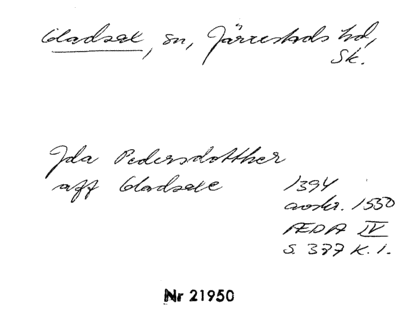 Gladsax, sn, Järrestads hd,
Sk.
Jda Pedersdotther
aff Gladsaxe 1394
avskr. 1550
ÆDA IV
S. 377 K. 1.
Nr 21950